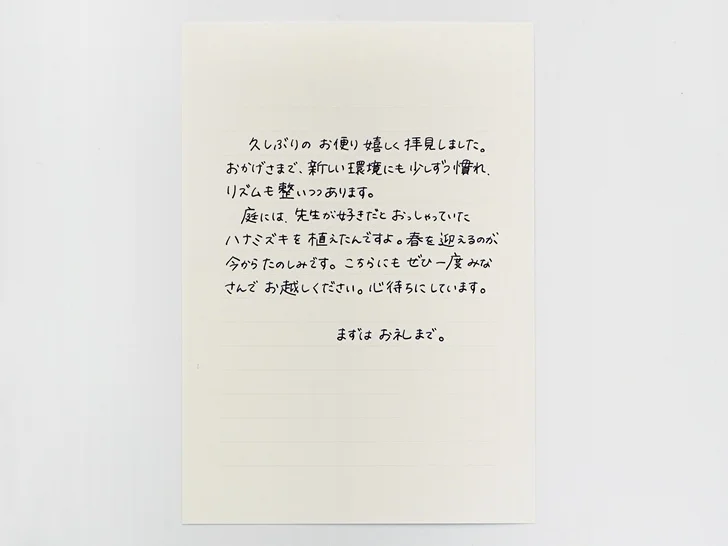 久しぶりのお便り嬉しく拝見しました。
おかげさまで、新しい環境にも少しずつ慣れ、
リズムも整いつつあります。
庭には、先生が好きだとおっしゃっていた
ハナミズキを植えたんですよ。春を迎えるのが
今からたのしみです。こちらにもぜひ一度みな
さんでお越しください。心待ちにしています。
まずはお礼まで。